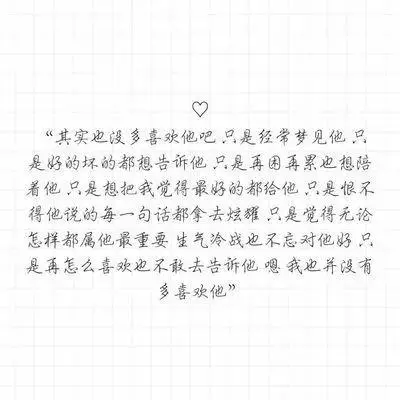 ♡
“其实也没多喜欢他吧 只是经常梦见他 只
是好的坏的都想告诉他 只是再困再累也想陪
着他 只是想把我觉得最好的都给他 只是恨不
得他说的每一句话都拿去炫耀 只是觉得无论
怎样都属他最重要 生气冷战也不忘对他好 只
是再怎么喜欢也不敢去告诉他 嗯 我也并没有
多喜欢他”